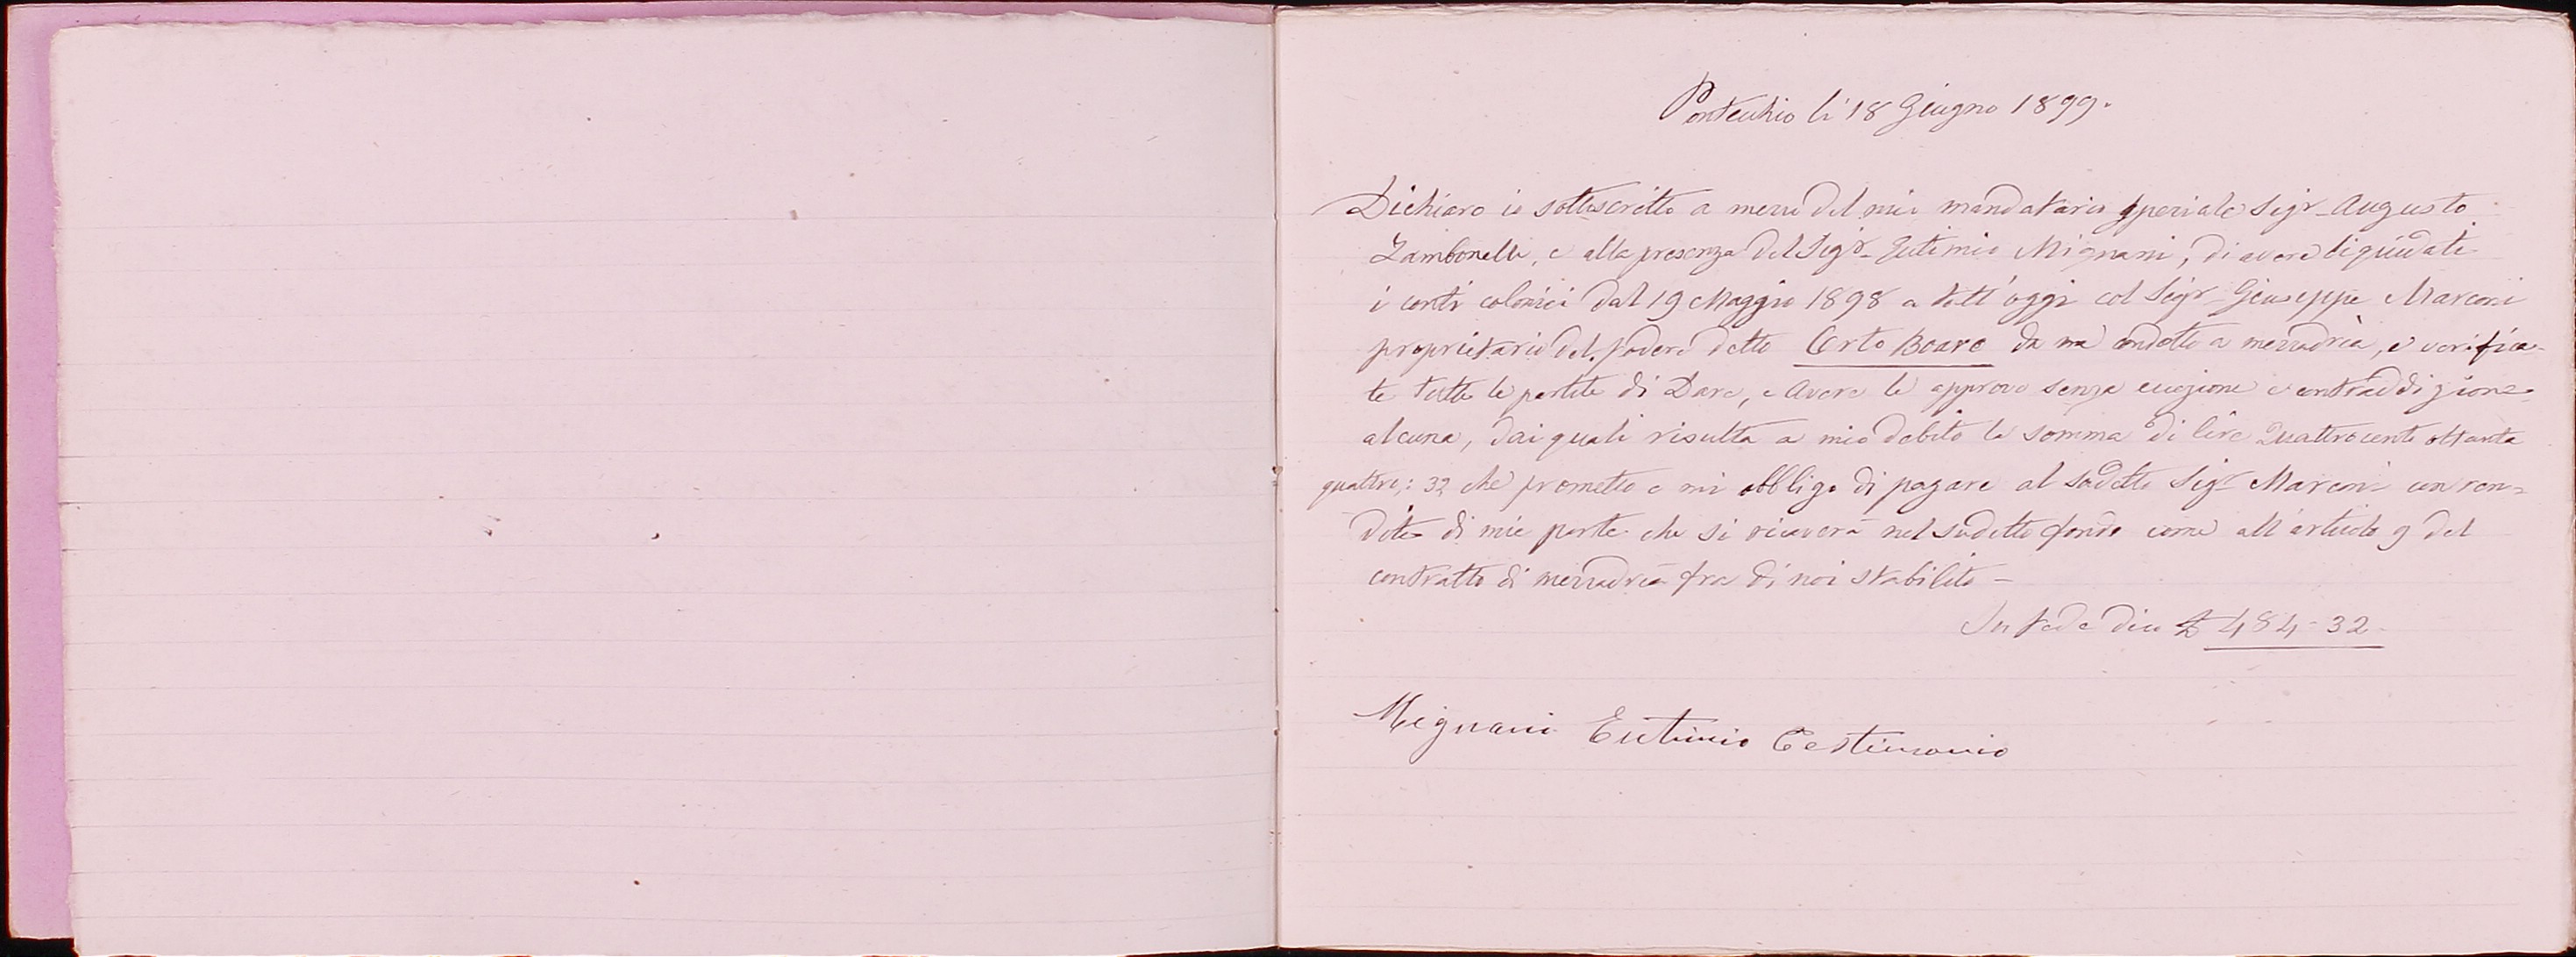 Pontecchio li 18 Giugno 1899.
Dichiaro io sottoscritto a mezzo del mio mandatario speciale Sigr. Augusto
Zambonelli, e alla presenza del Sigr. Eutimio Mignani, di avere liquidati
i conti colonici dal 19 Maggio 1898 a tutt'oggi col Sigr. Giuseppe Marconi
proprietario del podere detto Orto Boaro da me condotto a mezzadria, e verifica-
te tutte le partite di Dare, e Avere le approvo senza eccezione e contraddizione
alcuna, dai quali risulta a mio debito la somma di lire Quattrocento ottanta
quattro,: 32 che prometto e mi obbligo di pagare al sudetto Sigr. Marconi con ren=
dite di mie parte che si ricaverà nel sudetto fondo come all'articolo 9 del
contratto di mezzadria fra di noi stabilito -
In fede dico £ 484-32
Mignani Eutimio Testimonio